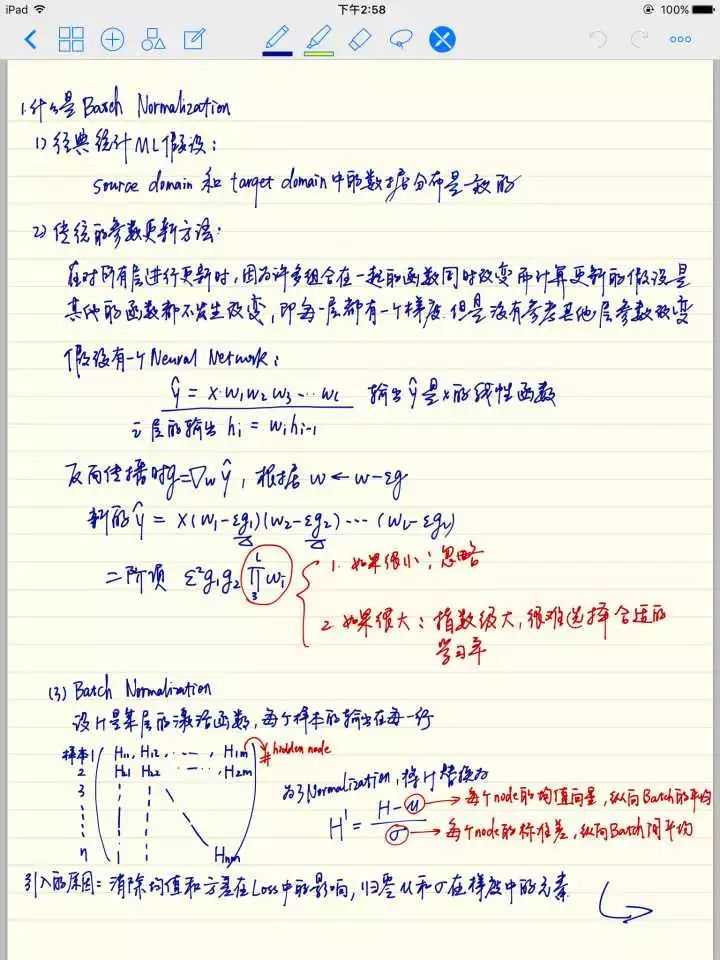 iPad 下午2:58 100%
1.什么是Batch Normalization
1) 经典统计ML假设：
source domain 和 target domain中的数据分布是一致的
2) 传统的参数更新方法：
在对所有层进行更新时，因为许多组合在一起的函数同时改变而计算更新的假设是
其他的函数都不发生改变，即每一层都有一个梯度.但是没有参考其他层参数改变
假设有一个Neural Network：
ŷ = x·w₁w₂w₃···w_L 输出ŷ是x的线性函数
i层的输出 hᵢ = wᵢhᵢ₋₁
反向传播时g=∇wŷ，根据 w ← w-εg
新的ŷ = x(w₁-εg₁)(w₂-εg₂)···(w_L-εg_L)
二阶项 ε²g₁g₂ ∏₃ᴸ wᵢ
1. 如果很小；忽略
2. 如果很大：指数级大，很难选择合适的
学习率
(3) Batch Normalization
设H是某层的激活函数，每个样本的输出在每一行
样本1 H₁₁, H₁₂, ···, H₁m # hidden node
2 H₂₁ H₂₂ ···, H₂m
3
n Hnm
为了Normalization，将H替换为
H' = (H-μ)/σ
每个node的均值向量，纵向Batch的平均
每个node的标准差，纵向Batch间平均
引入的原因：消除均值和方差在Loss中的影响，归零μ和σ在梯度中的元素